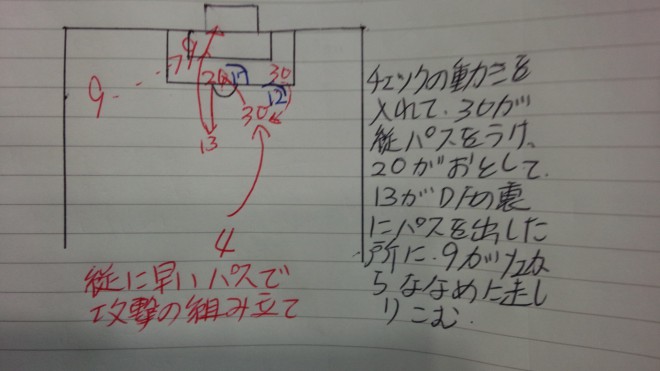 9
7
9
20
17
30
12
30
13
4
縦に早いパスで
攻撃の組み立て
チェックの動きを
入れて、30が
縦パスをうけ、
20がおとして、
13がDFの裏
にパスを出した
所に、9が
らななめに走し
りこむ.